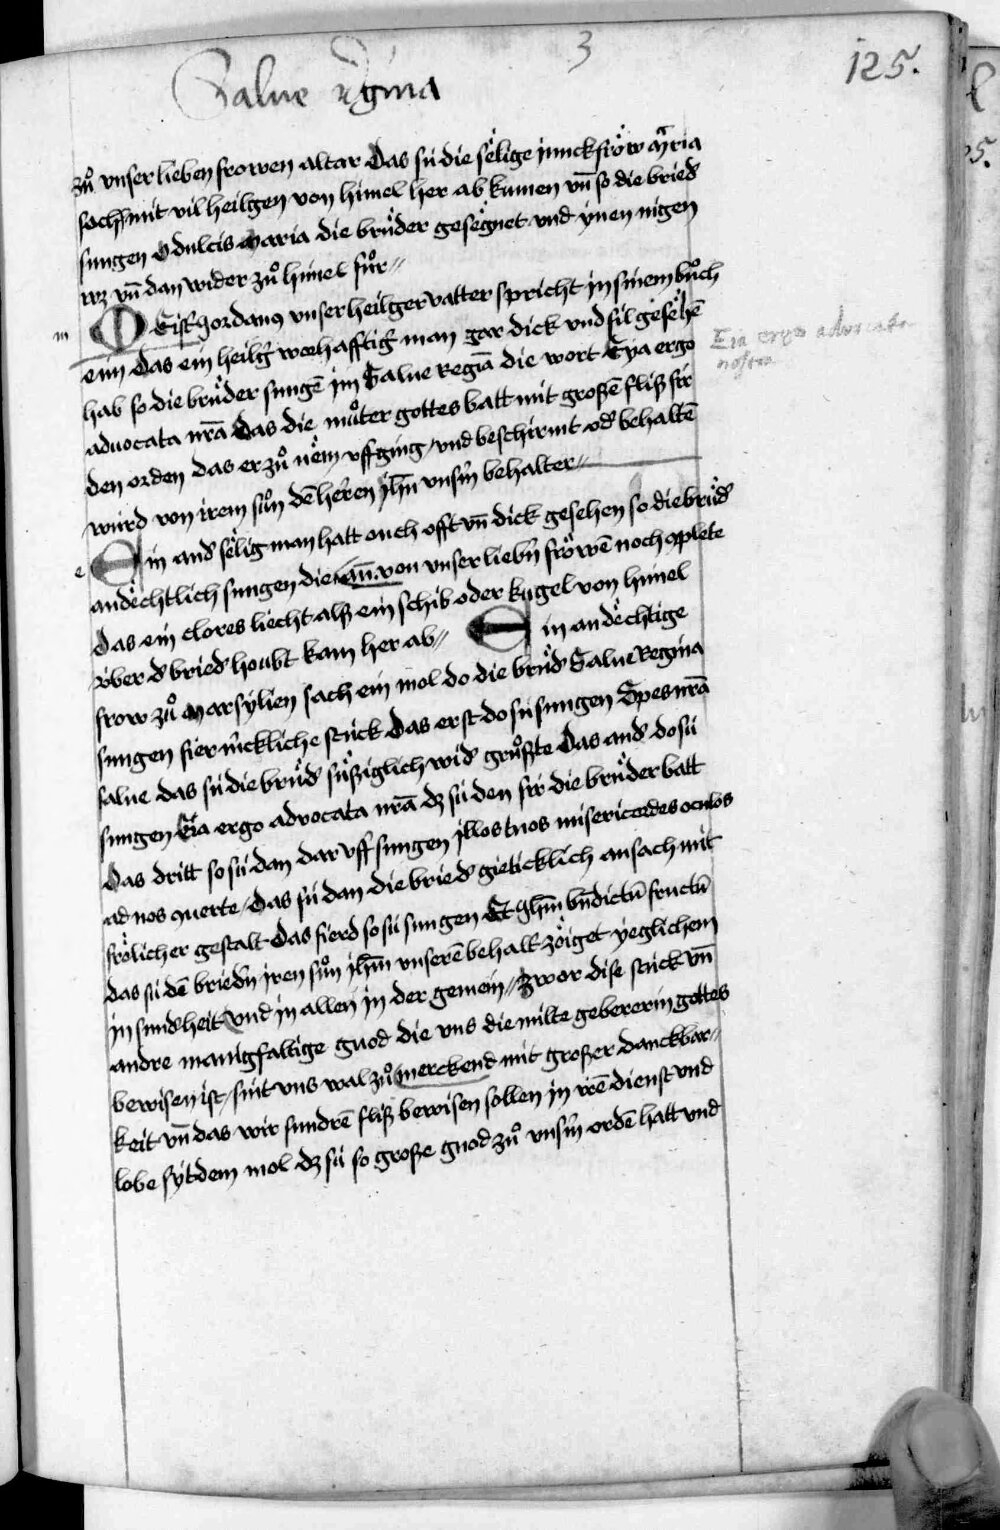 3
125.
Salue regina
zuͦ vnser lieben frowen altar Das sü die selige junckfröw maria
sach mit vil heilgen von himel her ab kumen vn̄ so die bried
sungen O dulcis maria die brüder gesegnet vnd ynen nigen
wz vn̄ dan wider zuͦ himel fuͦr
m
MEist Jordanꝰ vnser heilger vatter spricht in sinem buͦch
eim Das ein heilg warhafftig man gar dick vnd fil gesehē
Eia ergo aduocata
nostra
hab so die brüder sungē im Salue Regīa die wort Eya ergo
aduocata nr̄a Das die muͦter gottes batt mit großē fliß fir
den orden das er zuͦ nem vffging vnd beschirmt od behaltē
würd von irem suͦn dē herren jhm̄ vnsm̄ behalter
e
Ein and selig man hatt ouch offt vn̄ dick gesehen so die brüd
andechtlich sungen die an̄. von vnser liebn̄ fröwē noch 9plete
Das ein clores liecht alß ein schib oder kugel von himel
v̈ber d bried houbt kam her ab Ein andechtige
frow zuͦ marsylien sach ein mol do die brüd Salue Regina
sungen fier mckliche stück Das erst do sü sungen Spes nr̄a
salue das sü die brüd süßiglich wid gruͦßte Das and do sü
sungen Eia ergo advocata nr̄a dz sü den fir die brüder batt
Das dritt so sü dan dar vff sungen jllos tuos misericordes oculos
ad nos 9uerte Das sü dan die bried gieticklich ansach mit
frölicher gestalt Das fierd so sü sungen Et jhm̄ bn̄dictū fructū
das sü dē briedn̄ iren suͦn jhm̄ vnserē behalt zöiget yeglichem
in sundheit vnd in allen in der gemein zwor dise stück vn̄
andre manigfaltige gnod die vns die milte gebererin gottes
bewisen ist sint vns wal zuͦ merckend mit großer danckbar
keit vn̄ das wir sundrē fliß bewisen sollen in irē dienst vnd
lobe syt dem mol dz sü so große gnod zuͦ vnsm̄ ordē hatt vnd